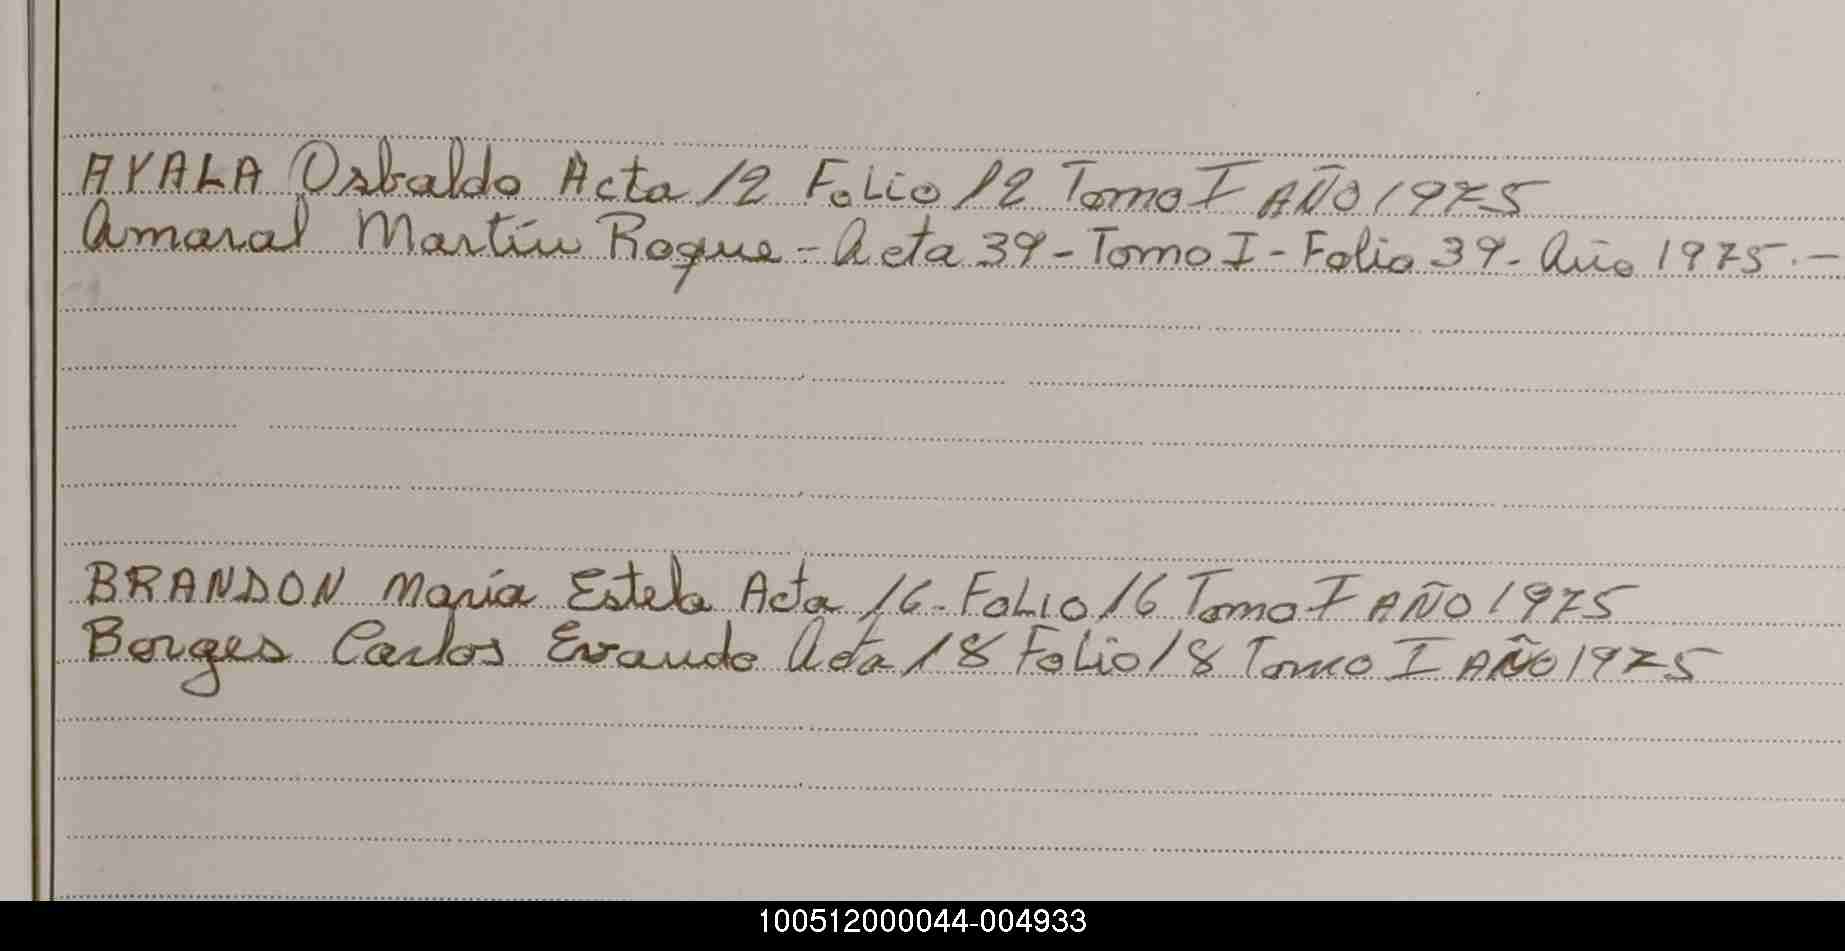 AYALA Osbaldo Acta 12 Folio 12 Tomo I AÑO 1975
Amaral Martín Roque - Acta 39 - Tomo I - Folio 39 - Año 1975. -
BRANDON María Estela Acta 16 - Folio 16 Tomo I AÑO 1975
Borges Carlos Evando Acta 18 Folio 18 Tomo I AÑO 1975
100512000044-004933